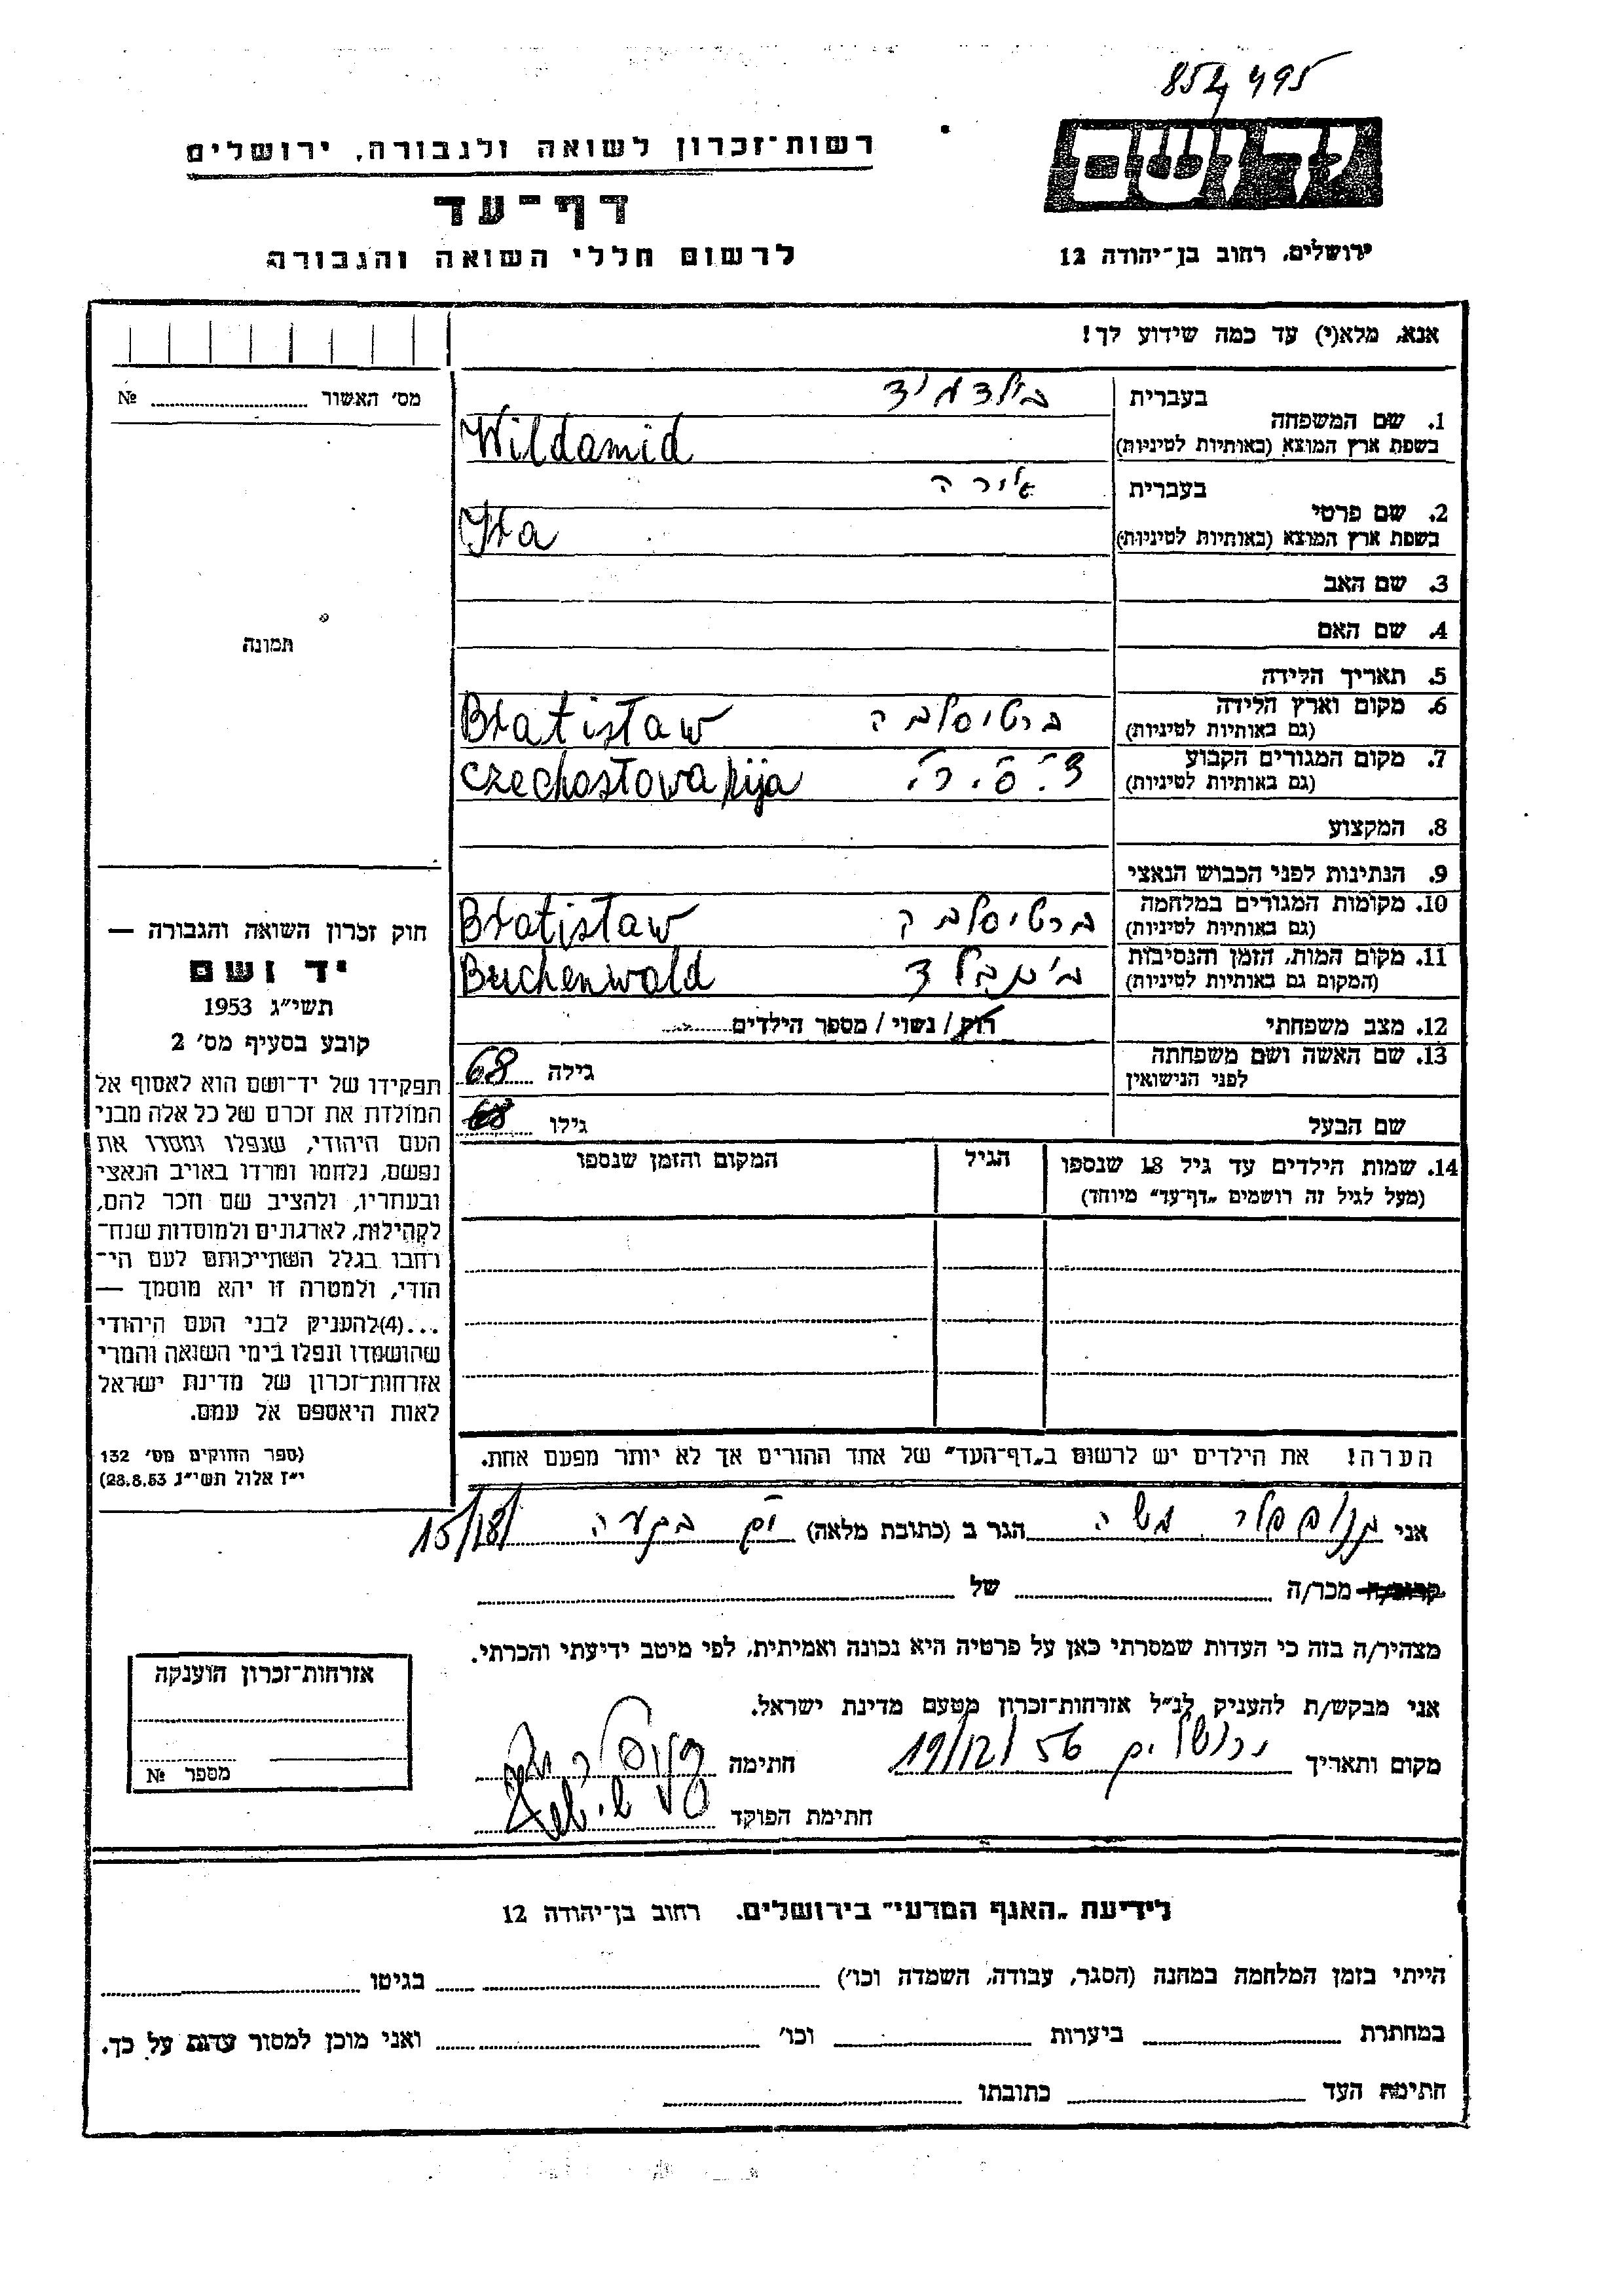 854495
רשות-זכרון לשואה ולגבורה, ירושלים
דף-עד
לרשום חללי השואה והגבורה
יד ושם
ירושלים, רחוב בן-יהודה 12
אנא, מלא(י) עד כמה שידוע לך!
מס׳ האשור № 
תמונה
חוק זכרון השואה והגבורה —
יד ושם
תשי״ג 1953
קובע בסעיף מס׳ 2
תפקידו של יד-ושם הוא לאסוף אל
המולדת את זכרם של כל אלה מבני
העם היהודי, שנפלו ומסרו את
נפשם, נלחמו ומרדו באויב הנאצי
ובעוזריו, ולהציב שם וזכר להם,
לקהילות, לארגונים ולמוסדות שנח-
רחבו בגלל השתייכותם לעם הי-
הודי, ולמטרה זו יהא מוסמך —
...(4)להעניק לבני העם היהודי
שהושמדו ונפלו בימי השואה והמרי
אזרחות-זכרון של מדינת ישראל
לאות היאספם אל עמם.
(ספר החוקים מס׳ 132
י״ז אלול תשי״ג 28.8.53)
בעברית וילדמיד
1. שם המשפחה
בשפת ארץ המוצא (באותיות לטיניות) Wildamid
בעברית אירה
2. שם פרטי
בשפת ארץ המוצא (באותיות לטיניות) Ira
3. שם האב
4. שם האם
5. תאריך הלידה
6. מקום וארץ הלידה ברטיסלבה Bratislaw
(גם באותיות לטיניות)
7. מקום המגורים הקבוע צ׳.ס.ר. Czechosłowakija
(גם באותיות לטיניות)
8. המקצוע
9. הנתינות לפני הכבוש הנאצי
10. מקומות המגורים במלחמה ברטיסלבה Bratislaw
(גם באותיות לטיניות)
11. מקום המות, הזמן והנסיבות Buchenwald
(המקום גם באותיות לטיניות)
12. מצב משפחתי רוק / נשוי / מספר הילדים
13. שם האשה ושם משפחתה
לפני הנישואין גילה 68
שם הבעל גילו 68
14. שמות הילדים עד גיל 18 שנספו הגיל המקום והזמן שנספו
(מעל לגיל זה רושמים „דף-עד״ מיוחד)
הערה! את הילדים יש לרשום ב„דף-העד״ של אחד ההורים אך לא יותר מפעם אחת.
אני משה הגר ב (כתובת מלאה) בקעה 15/18/
קרוב/ה מכר/ה של
מצהיר/ה בזה כי העדות שמסרתי כאן על פרטיה היא נכונה ואמיתית, לפי מיטב ידיעתי והכרתי.
אני מבקש/ת להעניק לנ״ל אזרחות-זכרון מטעם מדינת ישראל.
מקום ותאריך ירושלים 19/12/56 חתימה
חתימת הפוקד
אזרחות-זכרון הוענקה
מספר №
לידיעת „האגף המדעי״ בירושלים. רחוב בן-יהודה 12
הייתי בזמן המלחמה במחנה (הסגר, עבודה, השמדה וכו׳) בגיטו
במחתרת ביערות וכו׳ ואני מוכן למסור עדות על כך.
חתימת העד כתובתו